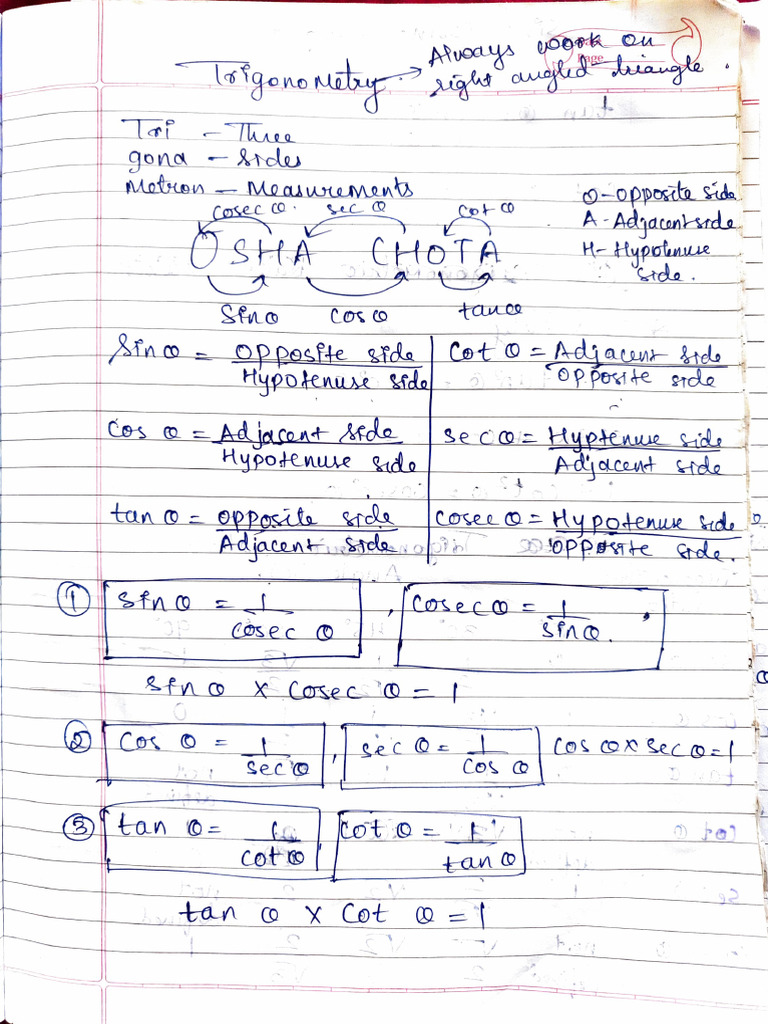 Trigonometry → Always work on
right angled triangle.
Page
Tri - Three
gona - Sides
Metron - Measurements
O - Opposite side
A - Adjacent side
H - Hypotenuse
side.
cosec θ. sec θ cot θ
OSHA CHOTA
Sin θ cos θ tan θ
Sin θ = Opposite side / Hypotenuse side
cot θ = Adjacent side / Opposite side
cos θ = Adjacent side / Hypotenuse side
sec θ = Hyptenuse side / Adjacent side
tan θ = Opposite side / Adjacent side
cosec θ = Hypotenuse side / Opposite side.
① sin θ = 1 / cosec θ , cosec θ = 1 / sin θ. ,
sin θ × cosec θ = 1
② cos θ = 1 / sec θ , sec θ = 1 / cos θ cos θ × sec θ = 1
③ tan θ = 1 / cot θ , cot θ = 1 / tan θ
tan θ × cot θ = 1